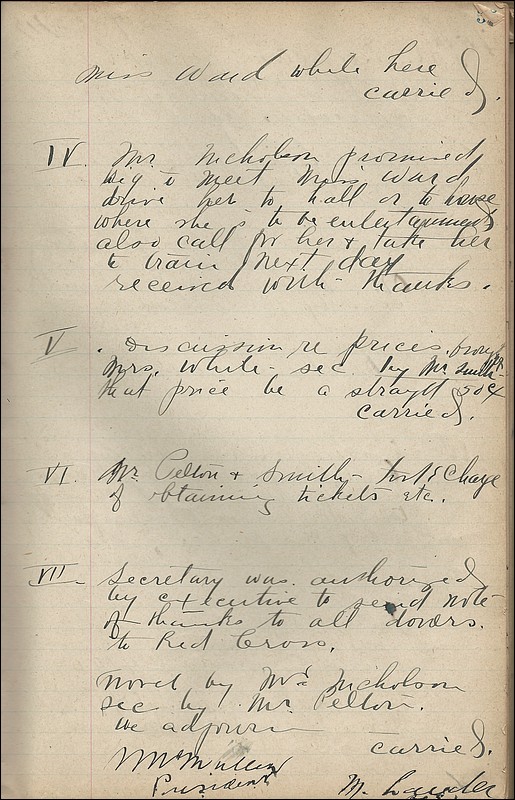 Miss Ward while here
carried.
IV. Mr. Nicholson promised
rig to meet Miss Ward
drive her to hall or to house
where she is to be entertained
also call for her & take her
to train next day
received with thanks.
V. Discussion re prices
Mrs. White - sec. by Mr. Smith
that price be a straight 50¢
carried.
VI. Mr. Pelton & Smith - took charge
of obtaining tickets etc.
VII Secretary was authorized
by executive to send note
of thanks to all donors
to Red Cross.
Moved by Mr. Nicholson
sec by Mr. Pelton.
we adjourn
carried.
President
M.